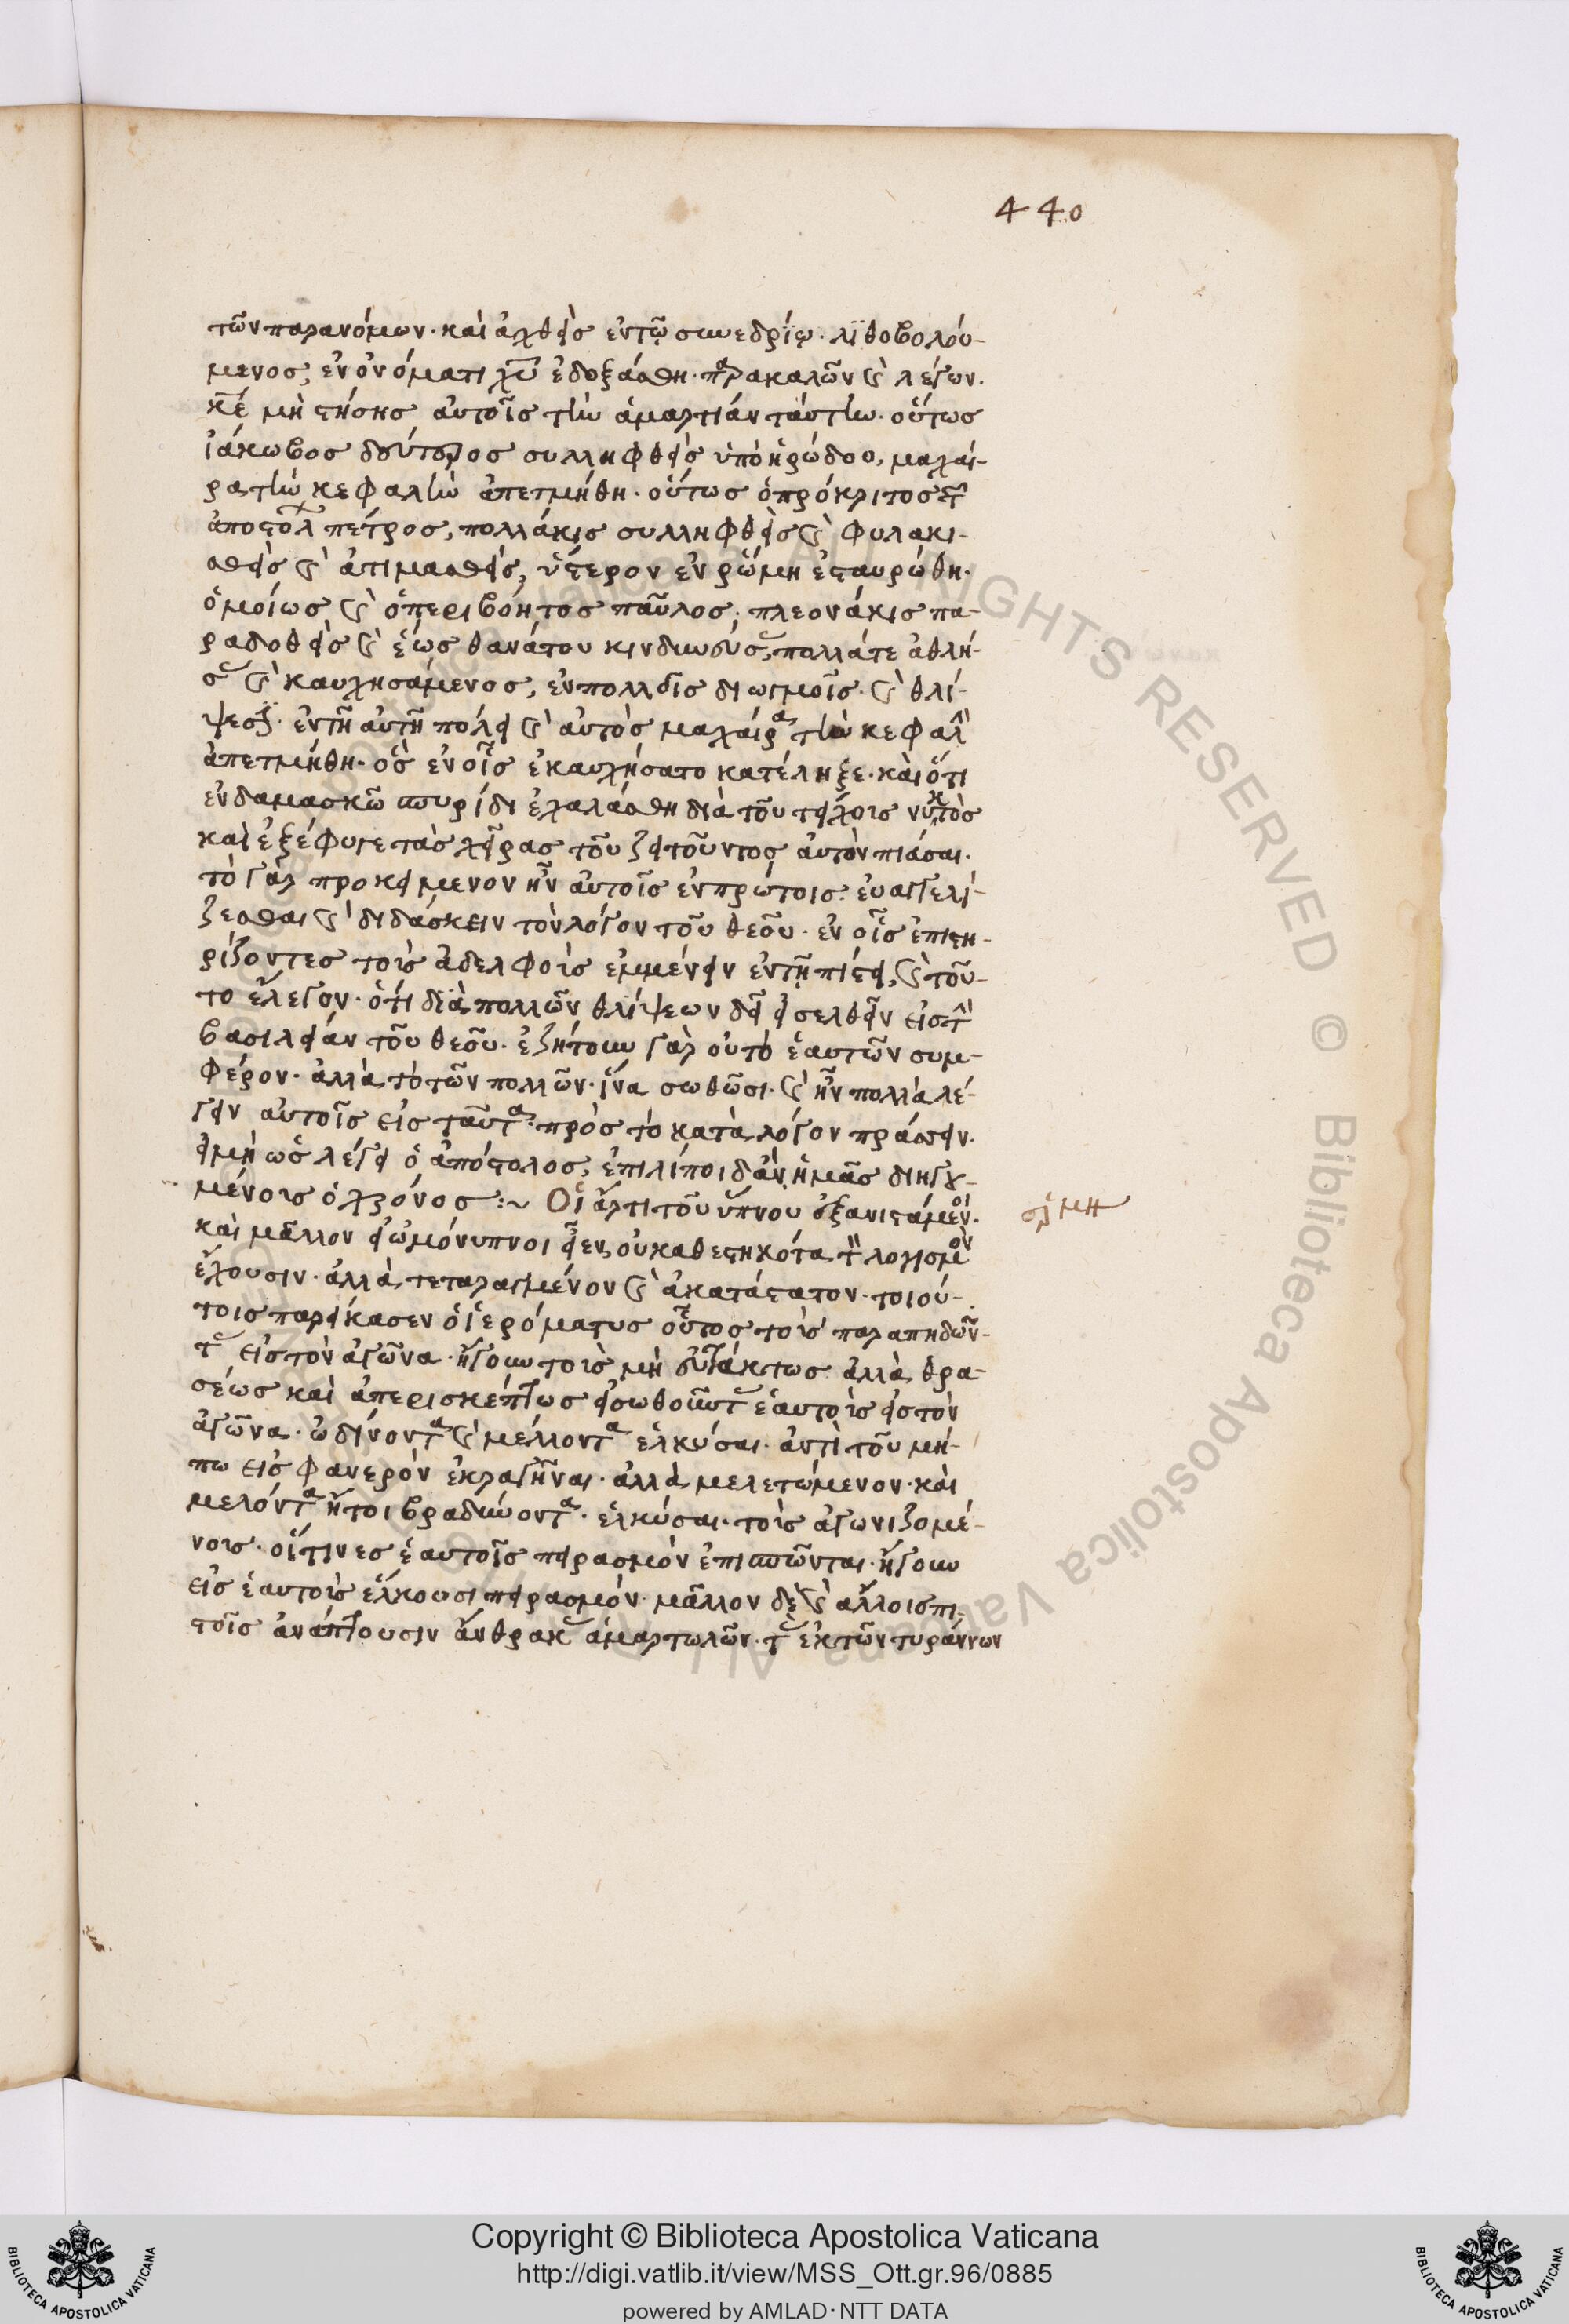 440
τῶν παρανόμων· καὶ ἀχθεὶς ἐν τῷ συνεδρίῳ· λϊθοβολού-
μενος, ἐν ὀνόματι χυ ἐδοξάσθη· παρακαλῶν καὶ λέγων·
κε μὴ στήσης αὐτοῖς τὴν ἁμαρτίαν ταύτην· οὕτως
ἰάκωβος δεύτερος συλληφθεὶς ὑπὸ ἡρώδου, μαχαί-
ρα τὴν κεφαλὴν ἀπετμήθη· οὕτως ὁ πρόκριτος τῶν
ἀποστόλ πέτρος, πολλάκις συλληφθεὶς καὶ φυλακι-
σθεὶς καὶ ἀτιμασθείς, ὕστερον ἐν ῥώμη ἐσταυρώθη·
ὁμοίως καὶ ὁ περιβόητος παῦλος, πλεονάκις πα-
ραδοθεὶς καὶ ἕως θανάτου κινδυνεύσας, πολλά τε ἀθλή-
σας καὶ καυχησάμενος, ἐν πολλοῖς διωγμοῖς· καὶ θλί-
ψεσι· ἐν τῆ αὐτῆ πόλει καὶ αὐτὸς μαχαίρα τὴν κεφαλὴν
ἀπετμήθη· ὃς ἐν οἷς ἐκαυχήσατο κατέληξε· καὶ ὅτι
ἐν δαμασκῶ σπυρίδι ἐχαλάσθη διὰ τοῦ τείχους νυκτὸς
καὶ ἐξέφυγε τὰς χεῖρας τοῦ ζητοῦντος αὐτὸν πιάσαι·
τὸ γὰρ προκείμενον ἦν αὐτοῖς ἐν πρώτοις· εὐαγγελί-
ζεσθαι καὶ διδάσκειν τὸν λόγον τοῦ θεοῦ· ἐν οἷς ἐπιστη-
ρίζοντες τοὺς ἀδελφοὺς ἐμμένειν ἐν τῇ πίστει, καὶ τοῦ-
το ἔλεγον· ὅτι διὰ πολλῶν θλίψεων δεῖ εἰσελθεῖν εἰς τὴν
βασιλείαν τοῦ θεοῦ· ἐζήτουν γὰρ οὐ τὸ ἑαυτῶν συμ-
φέρον· ἀλλὰ τὸ τῶν πολλῶν· ἵνα σωθῶσι· καὶ ἦν πολλὰ λέ-
γειν αὐτοῖς εἰς ταῦτα· πρὸς τὸ κατὰ λόγον πράσσειν·
εἰ μὴ ὡς λέγει ὁ ἀπόστολος, ἐπιλίποι δ' ἂν ἡμᾶς διηγου-
μένους ὁ χρόνος :~ Οἱ ἄρτι τοῦ ὕπνου ἐξανιστάμενοι·
σχ μη
καὶ μᾶλλον εἰ ὠμόνυπνοι εἶεν, οὐ καθεστηκότα τὸν λογισμὸν
ἔχουσιν· ἀλλὰ τεταραγμένον καὶ ἀκατάστατον· τοιού-
τοις παρείκασεν ὁ ἱερόματυς οὗτος τοὺς παραπηδῶν-
τας εἰς τὸν ἀγῶνα· ἤγουν τοὺς μὴ εὐτάκτως ἀλλὰ θρα-
σέως καὶ ἀπερισκέπτως εἰσωθοῦντας ἑαυτοὺς εἰς τὸν
ἀγῶνα· ὠδίνοντα καὶ μέλλοντα ἑλκύσαι· ἀντὶ τοῦ μή-
πω εἰς φανερὸν ἐκραγῆναι· ἀλλὰ μελετώμενον· καὶ
μελόντα ἤτοι βραδύνοντα· ἑλκύσαι· τοὺς ἀγωνιζομέ-
νους· οἵτινες ἑαυτοῖς πειρασμὸν ἐπισπῶνται· ἤγουν
εἰς ἑαυτοὺς ἕλκουσι πειρασμόν· μᾶλλον δὲ καὶ ἄλλοις πι-
στοῖς ἀνάπτουσιν ἄνθρακας ἁμαρτωλῶν· τὰς ἐκ τῶν τυράννων
Copyright © Biblioteca Apostolica Vaticana
http://digi.vatlib.it/view/MSS_Ott.gr.96/0885
powered by AMLAD·NTT DATA
BIBLIOTECA APOSTOLICA VATICANA
BIBLIOTECA APOSTOLICA VATICANA